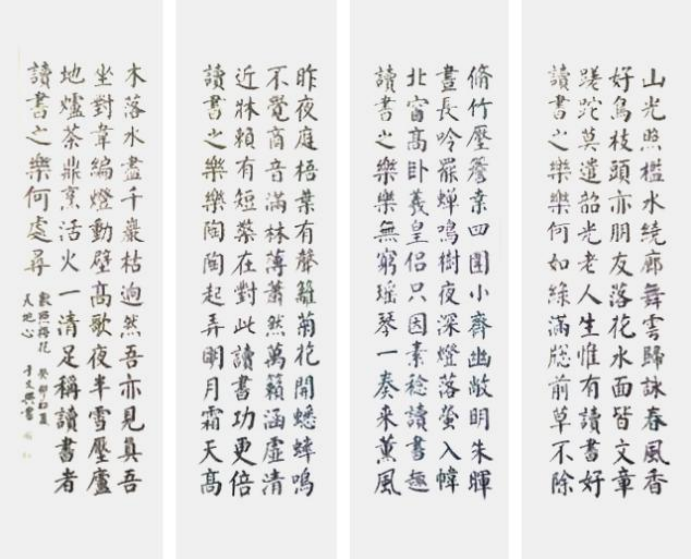 山光照檻水繞廊舞雲歸詠春風香
好鳥枝頭亦朋友落花水面皆文章
蹉跎莫遣韶光老人生惟有讀書好
讀書之樂樂何如綠滿窻前草不除
脩竹壓簷桑四圍小齋幽敞明朱暉
晝長吟罷蟬鳴樹夜深燈落螢入幃
北窗高卧羲皇侶只因素稔讀書趣
讀書之樂樂無窮瑤琴一奏來薰風
昨夜庭梧葉有聲籬菊花開蟋蟀鳴
不覺商音滿林薄蕭然萬籟涵虛清
近牀賴有短檠在對此讀書功更倍
讀書之樂樂陶陶起弄明月霜天高
木落水盡千巖枯迥然吾亦見真吾
坐對韋編燈動壁高歌夜半雪壓廬
地爐茶鼎烹活火一清足稱讀書者
讀書之樂何處尋
數點梅花
天地心
癸卯初夏